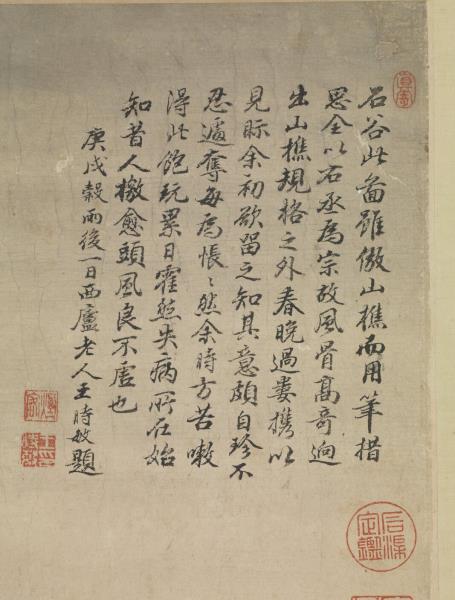 石谷此圖雖倣山樵而用筆措
思全以右丞為宗故風骨高奇迥
出山樵規格之外春晚過婁携以
見眎余初欲留之知其意頗自珍不
忍遽奪每為悵〻然余時方苦嗽
得此飽玩累日霍然失病所在始
知昔人檄愈頭風良不虗也
庚戌穀雨後一日西廬老人王時敏題